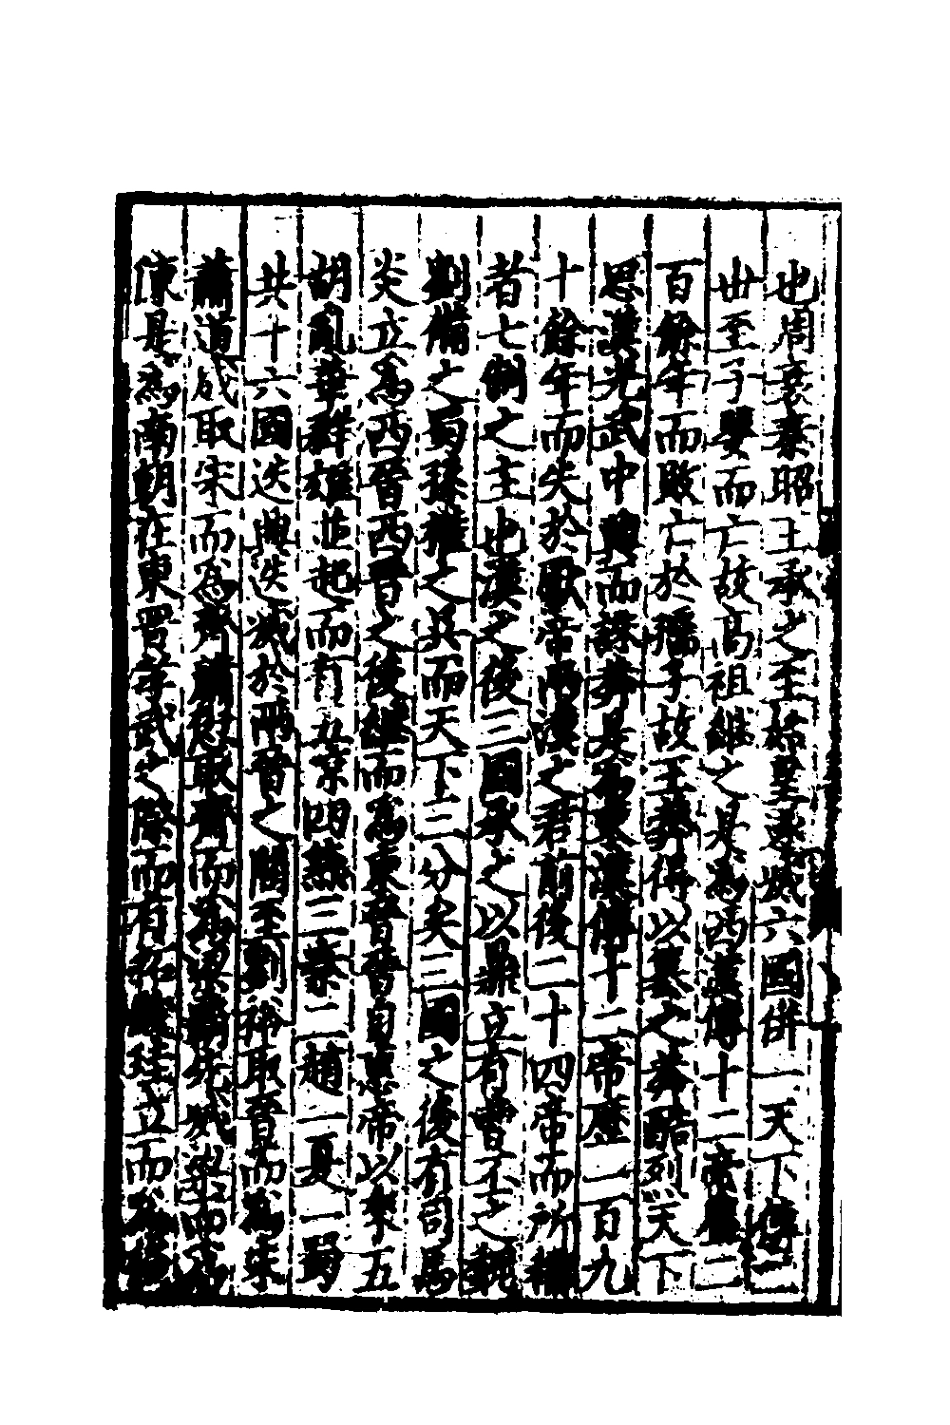 也周衰秦昭王承之至始皇遂㓕六國併一天下傳二
丗至子嬰而亡故高祖継之是為西漢傳十二帝歷二
百餘年而敗亡於孺子故王莽得以篡之莽酷列天下
思漢光武中興而誅莽是為東漢傳十二帝歷一百九
十餘年而失於獻帝两漢之君前後二十四帝而所稱
者七制之主也漢之後三國承之以鼎立有曹丕之魏
劉備之蜀孫權之吳而天下三分矣三國之後有司馬
炎立為西晉西晉之後継而為東晉晉自惠帝以來五
胡亂華群雄並起而有五凉四燕三秦二趙一夏一蜀
共十六國迭興迭㓕於兩晉之間至劉裕取晉而為宋
蕭道成取宋而為齊蕭衍取齊而為梁霸先㓕梁而為
陳是為南朝在東晋孝武之際而有拓䟦珪立而為